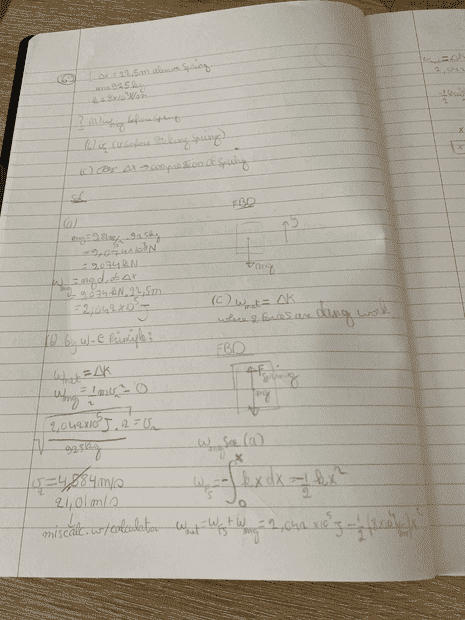 6.
Δx = 22,5m above spring
m = 925kg
k = 8x10⁴ N/m
? (a) W_mg before spring
(b) v₂ (before striking spring)
(c) Δx → compression of spring
Sol
(a)
mg = 9.81m/s² . 925kg
= 9,074x10³N
= 9.074kN
W_mg = mg d, d=Δx
= 9.074kN . 22,5m
= 2,042x10⁵ J
FBD
mg
(b) by W-E Principle:
W_net = ΔK
W_mg = 1/2 mv₂² - 0
√(2,042x10⁵J . 2 / 925kg) = v₂
v₂ = 4,584 m/s
21,01 m/s
miscalc. w/calculator
(c) W_net = ΔK
where 2 forces are doing work
FBD
F_spring
mg
W_mg See (a)
W_FS = -∫₀ˣ kx dx = -1/2 kx²
W_net = W_FS + W_mg = 2,042 x10⁵J - 1/2 (8x10⁴ N/m) x²